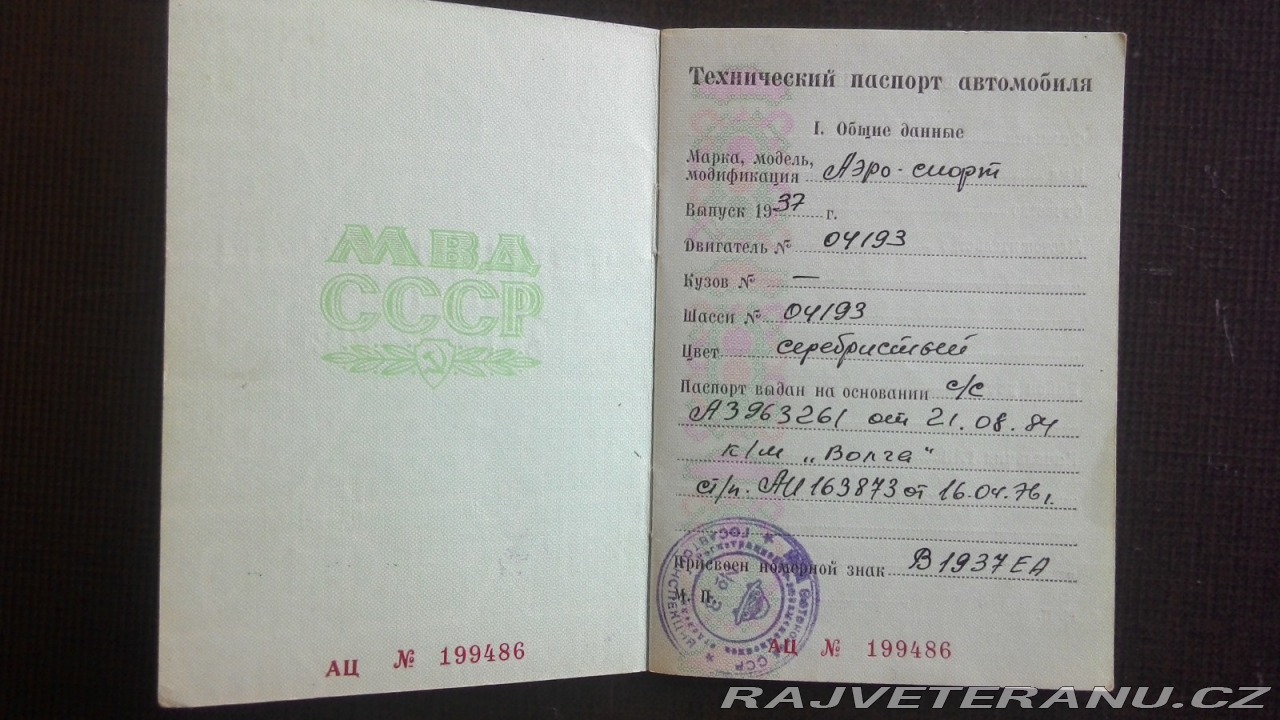 МВД
СССР
АЦ № 199486
Технический паспорт автомобиля
I. Общие данные
Марка, модель,
модификация Аэро-спорт
Выпуск 1937 г.
Двигатель № 04193
Кузов № —
Шасси № 04193
Цвет серебристый
Паспорт выдан на основании с/с
АЗ963261 от 21.08.84
к/м „Волга“
ст/п. АИ163873 от 16.04.76г.
Присвоен номерной знак В1937ЕА
М. П.
АЦ № 199486
RAJVETERANU.CZ